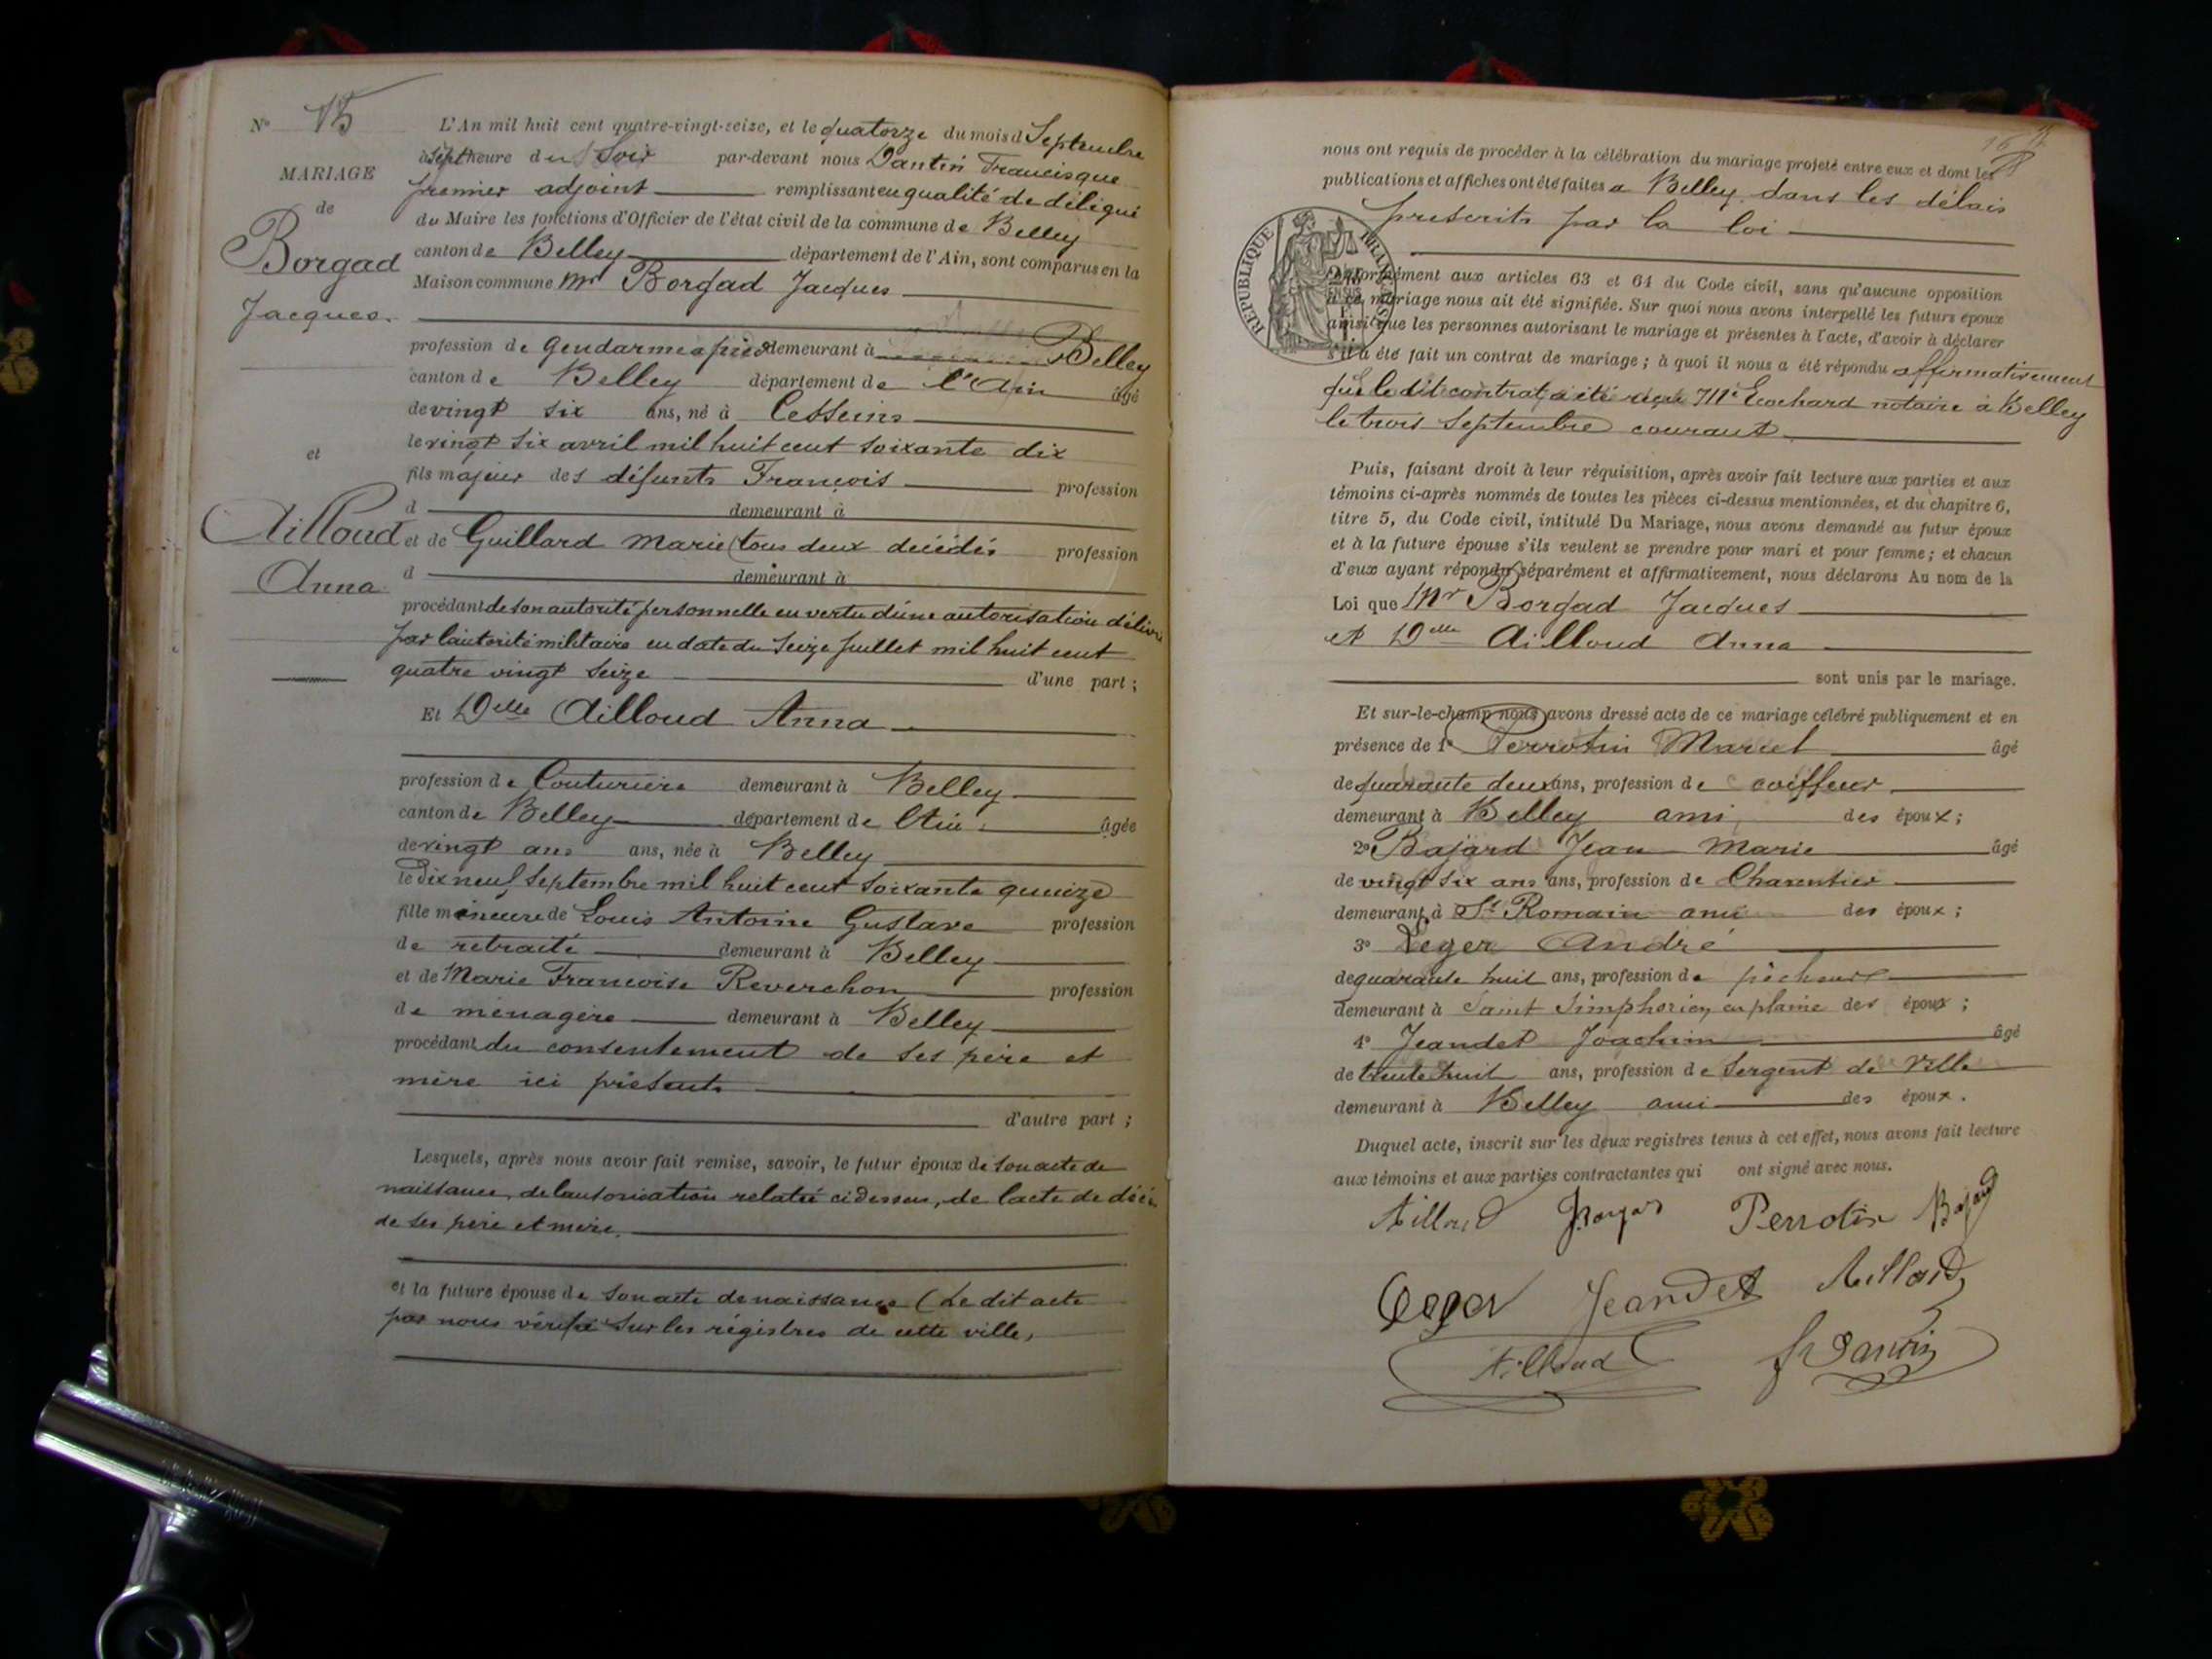 N° 15
MARIAGE
de
Borgad
Jacques.
et
Ailloud
Anna
L'An mil huit cent quatre-vingt-seize, et le quatorze du mois d Septembre
à sept heure du Soir par-devant nous Dantin Francisque
premier adjoint remplissant en qualité de délégué
du Maire les fonctions d'Officier de l'état civil de la commune de Belley
canton de Belley département de l'Ain, sont comparus en la
Maison commune Mr Borgad Jacques
profession de gendarme à pied demeurant à Belley
canton de Belley département de l'Ain âgé
de vingt six ans, né à Cesseins
le vingt six avril mil huit cent soixante dix
fils majeur des défunts François profession
d demeurant à
et de Guillard Marie (tous deux décédés profession
d demeurant à
procédant de son autorité personnelle en vertu d'une autorisation délivré
par l'autorité militaire en date du seize juillet mil huit cent
quatre vingt seize d'une part ;
Et Delle Ailloud Anna
profession de Couturière demeurant à Belley
canton de Belley département de l'Ain âgée
de vingt ans ans, née à Belley
le dix neuf Septembre mil huit cent soixante quinze
fille mineure de Louis Antoine Gustave profession
de retraité demeurant à Belley
et de Marie Francoise Reverchon profession
de ménagère demeurant à Belley
procédant du consentement de ses père et
mère ici présents
d'autre part ;
Lesquels, après nous avoir fait remise, savoir, le futur époux de son acte de
naissance, de l'autorisation relatée ci dessus, de l'acte de décès
de ses père et mère.
et la future épouse de son acte de naissance (Le dit acte
par nous vérifié sur les régistres de cette ville,
nous ont requis de procéder à la célébration du mariage projeté entre eux et dont les
publications et affiches ont été faites a Belley dans les délais
prescrits par la loi
RÉPUBLIQUE FRANÇAISE
conformément aux articles 63 et 64 du Code civil, sans qu'aucune opposition
à ce mariage nous ait été signifiée. Sur quoi nous avons interpellé les futurs époux
ainsi que les personnes autorisant le mariage et présentes à l'acte, d'avoir à déclarer
s'il a été fait un contrat de mariage ; à quoi il nous a été répondu affirmativement
que le dit contrat a été reçu Me notaire à Belley
le trois Septembre courant
Puis, faisant droit à leur réquisition, après avoir fait lecture aux parties et aux
témoins ci-après nommés de toutes les pièces ci-dessus mentionnées, et du chapitre 6,
titre 5, du Code civil, intitulé Du Mariage, nous avons demandé au futur époux
et à la future épouse s'ils veulent se prendre pour mari et pour femme ; et chacun
d'eux ayant répondu séparément et affirmativement, nous déclarons Au nom de la
Loi que Mr Borgad Jacques
et Delle Ailloud Anna
sont unis par le mariage.
Et sur-le-champ nous avons dressé acte de ce mariage célébré publiquement et en
présence de 1° Perrotin Marcel âgé
de quarante deux ans, profession de coiffeur
demeurant à Belley ami des époux ;
2° Bajard Jean Marie âgé
de vingt six ans ans, profession de Charentier
demeurant à St Romain ami des époux ;
3° Leger André
de quarante huit ans, profession de pêcheur
demeurant à Saint Simphorien en plaine des époux ;
4° Jeandet Joachim âgé
de trente huit ans, profession de Sergent de Ville
demeurant à Belley ami des époux.
Duquel acte, inscrit sur les deux registres tenus à cet effet, nous avons fait lecture
aux témoins et aux parties contractantes qui ont signé avec nous.
Ailloud Borgad Perrotin Bajard
Leger Jeandet Ailloud
Ailloud F Dantin